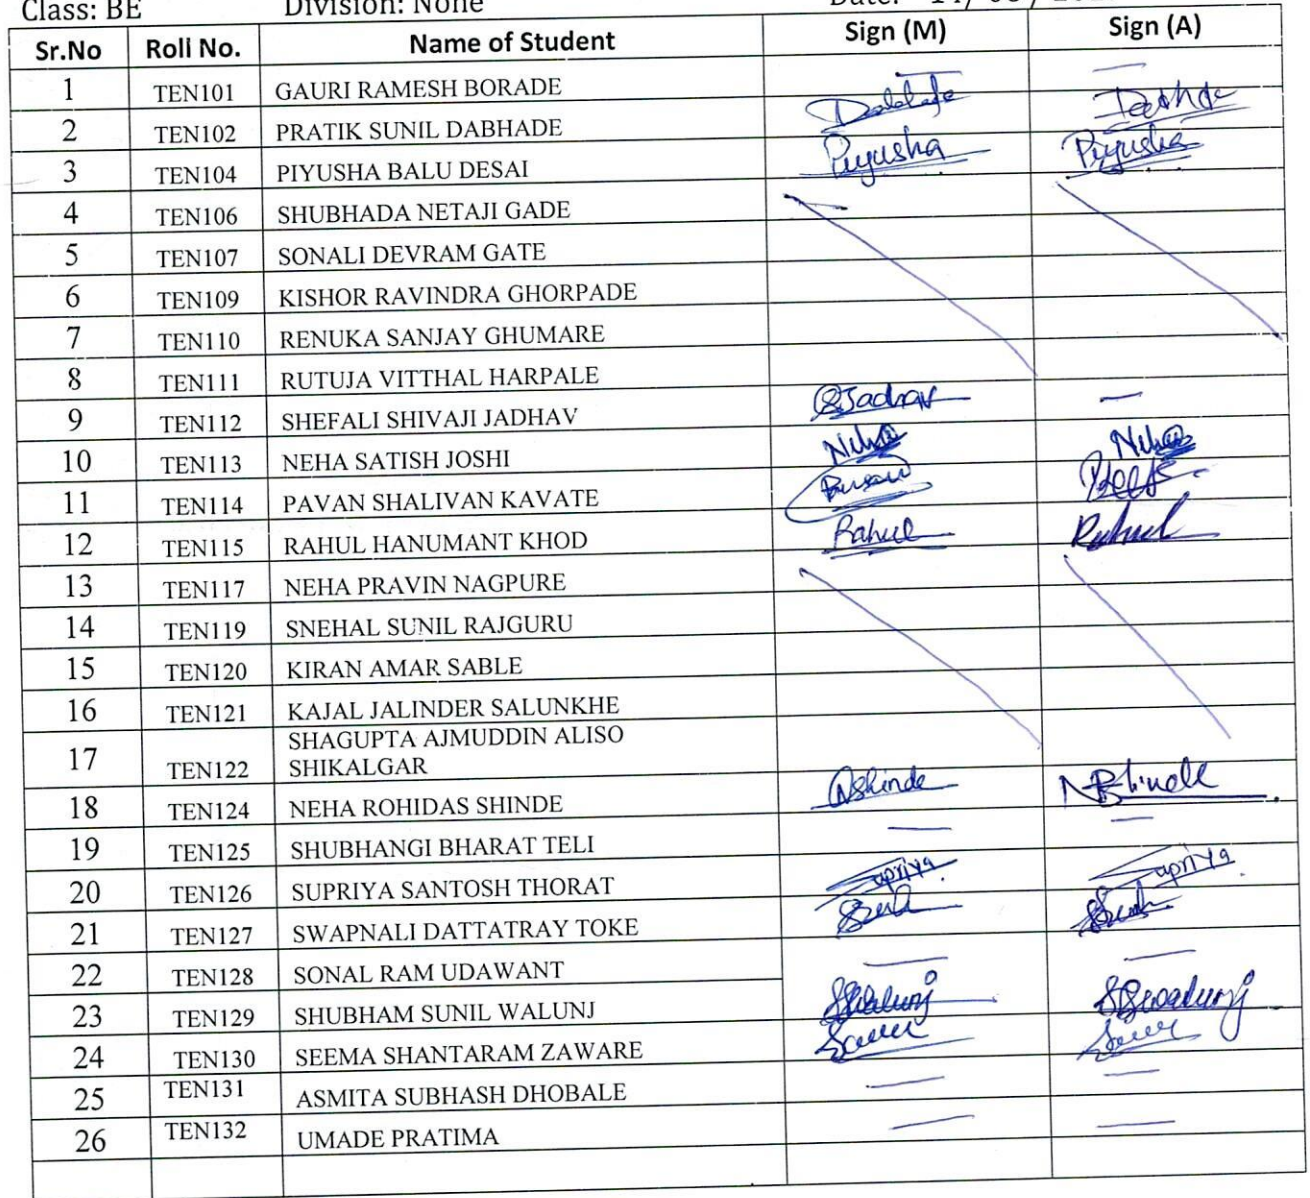 Class: BE Division: None Date:
Sr.No Roll No. Name of Student Sign (M) Sign (A)
1 TEN101 GAURI RAMESH BORADE — —
2 TEN102 PRATIK SUNIL DABHADE
3 TEN104 PIYUSHA BALU DESAI Piyusha Piyusha
4 TEN106 SHUBHADA NETAJI GADE
5 TEN107 SONALI DEVRAM GATE
6 TEN109 KISHOR RAVINDRA GHORPADE
7 TEN110 RENUKA SANJAY GHUMARE
8 TEN111 RUTUJA VITTHAL HARPALE
9 TEN112 SHEFALI SHIVAJI JADHAV SJadhav —
10 TEN113 NEHA SATISH JOSHI Neha Neha
11 TEN114 PAVAN SHALIVAN KAVATE
12 TEN115 RAHUL HANUMANT KHOD Rahul Rahul
13 TEN117 NEHA PRAVIN NAGPURE
14 TEN119 SNEHAL SUNIL RAJGURU
15 TEN120 KIRAN AMAR SABLE
16 TEN121 KAJAL JALINDER SALUNKHE
17 TEN122 SHAGUPTA AJMUDDIN ALISO
SHIKALGAR
18 TEN124 NEHA ROHIDAS SHINDE NShinde NRShinde
19 TEN125 SHUBHANGI BHARAT TELI — —
20 TEN126 SUPRIYA SANTOSH THORAT Supriya Supriya
21 TEN127 SWAPNALI DATTATRAY TOKE
22 TEN128 SONAL RAM UDAWANT — —
23 TEN129 SHUBHAM SUNIL WALUNJ SSWalunj SSWalunj
24 TEN130 SEEMA SHANTARAM ZAWARE
25 TEN131 ASMITA SUBHASH DHOBALE — —
26 TEN132 UMADE PRATIMA — —